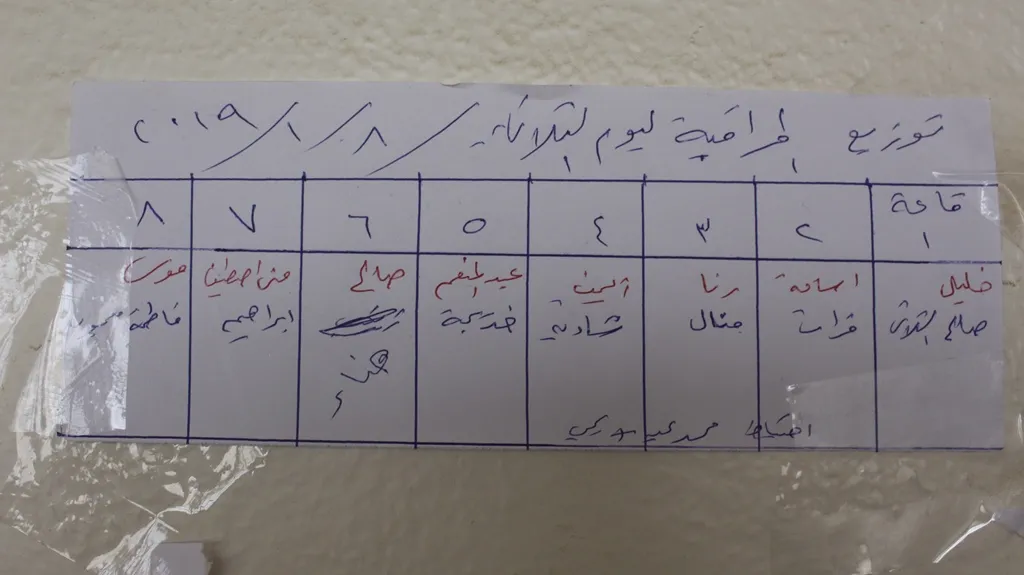 توزيع المراقبة ليوم الثلاثاء ٨ / ١٠ / ٢٠١٩
قاعة ١ ٢ ٣ ٤ ٥ ٦ ٧ ٨
خليل اسامة رنا عبد المنعم صالح منى موسى
صالح فرات منال شادية خديجة هناء ابراهيم فاطمة
احتياط محمد عيد